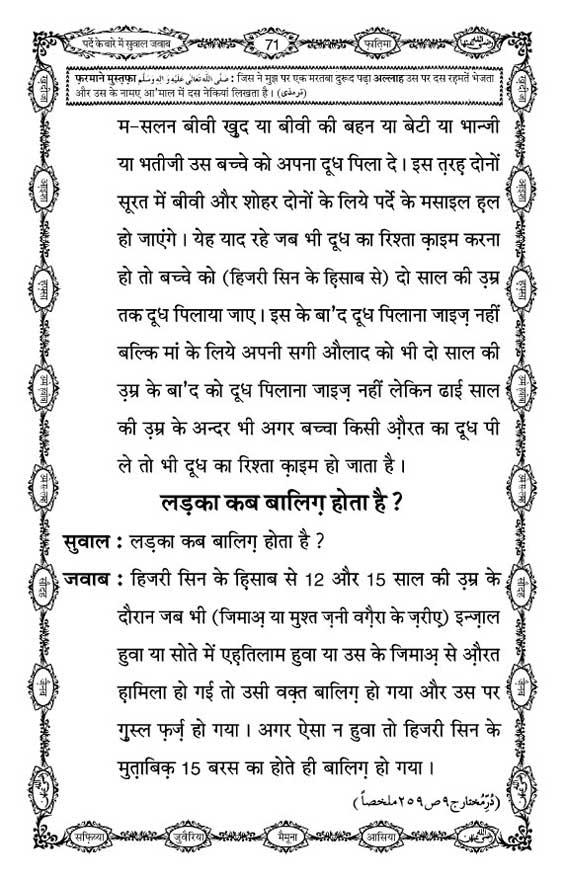 पर्दे के बारे में सुवाल जवाब
71
फ़ातिमा
फ़रमाने मुस्तफ़ा صَلَّى اللهُ تَعَالٰى عَلَيْهِ وَاٰلِهٖ وَسَلَّم : जिस ने मुझ पर एक मरतबा दुरूद पढ़ा अल्लाह उस पर दस रहमतें भेजता
और उस के नामए आ'माल में दस नेकियां लिखता है। (ترمذی)
म-सलन बीवी ख़ुद या बीवी की बहन या बेटी या भान्जी
या भतीजी उस बच्चे को अपना दूध पिला दे। इस त़रह़ दोनों
सूरत में बीवी और शोहर दोनों के लिये पर्दे के मसाइल ह़ल
हो जाएंगे। येह याद रहे जब भी दूध का रिश्ता क़ाइम करना
हो तो बच्चे को (हिजरी सिन के ह़िसाब से) दो साल की उ़म्र
तक दूध पिलाया जाए। इस के बा'द दूध पिलाना जाइज़ नहीं
बल्कि मां के लिये अपनी सगी औलाद को भी दो साल की
उ़म्र के बा'द को दूध पिलाना जाइज़ नहीं लेकिन ढाई साल
की उ़म्र के अन्दर भी अगर बच्चा किसी औ़रत का दूध पी
ले तो भी दूध का रिश्ता क़ाइम हो जाता है।
लड़का कब बालिग़ होता है ?
सुवाल : लड़का कब बालिग़ होता है ?
जवाब : हिजरी सिन के ह़िसाब से 12 और 15 साल की उ़म्र के
दौरान जब भी (जिमाअ़ या मुश्त ज़नी वग़ैरा के ज़रीए़) इन्ज़ाल
हुवा या सोते में एह़तिलाम हुवा या उस के जिमाअ़ से औ़रत
ह़ामिला हो गई तो उसी वक़्त बालिग़ हो गया और उस पर
ग़ुस्ल फ़र्ज़ हो गया। अगर ऐसा न हुवा तो हिजरी सिन के
मुत़ाबिक़ 15 बरस का होते ही बालिग़ हो गया।
(دُرِّمُختار ج۹ ص۲۵۹ ملخصاً)
सफ़िय्या
जुवैरिया
मैमूना
आसिया